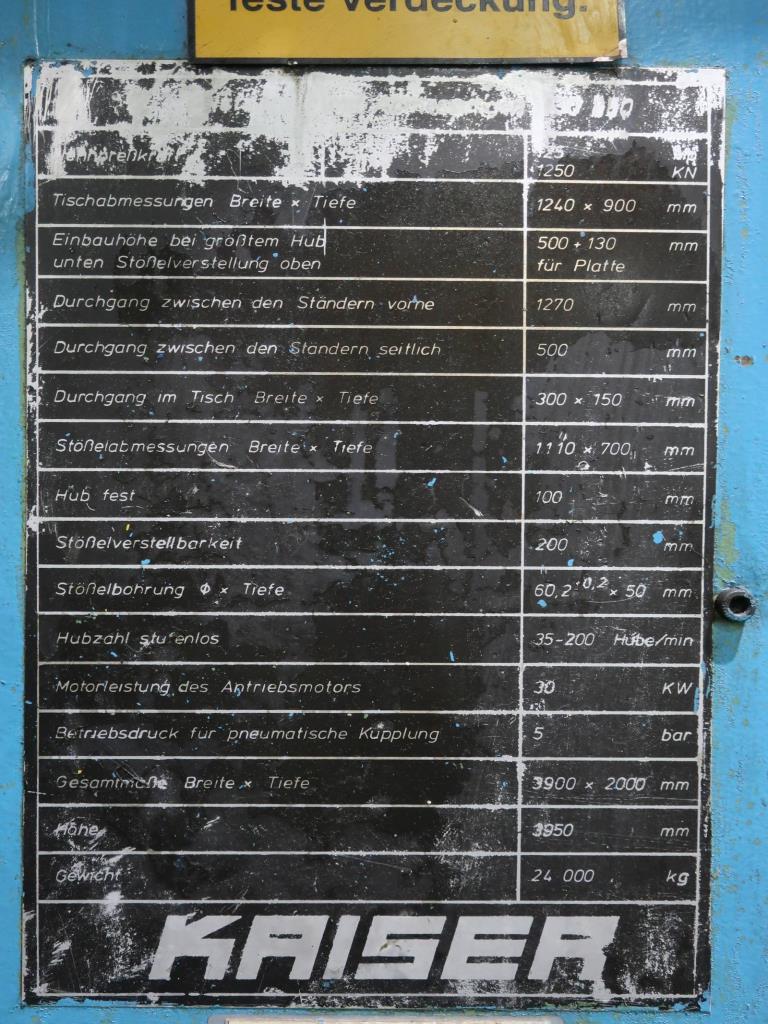 feste Verdeckung.
Nennpreßkraft
1250 KN
Tischabmessungen Breite × Tiefe 1240 × 900 mm
Einbauhöhe bei größtem Hub 500 + 130 mm
unten Stößelverstellung oben für Platte
Durchgang zwischen den Ständern vorne 1270 mm
Durchgang zwischen den Ständern seitlich 500 mm
Durchgang im Tisch Breite × Tiefe 300 × 150 mm
Stößelabmessungen Breite × Tiefe 1110 × 700 mm
Hub fest 100 mm
Stößelverstellbarkeit 200 mm
Stößelbohrung Φ × Tiefe 60,2 +0,2 × 50 mm
Hubzahl stufenlos 35-200 Hübe/min
Motorleistung des Antriebsmotors 30 KW
Betriebsdruck für pneumatische Kupplung 5 bar
Gesamtmaße Breite × Tiefe 3900 × 2000 mm
Höhe 3950 mm
Gewicht 24 000 kg
KAISER